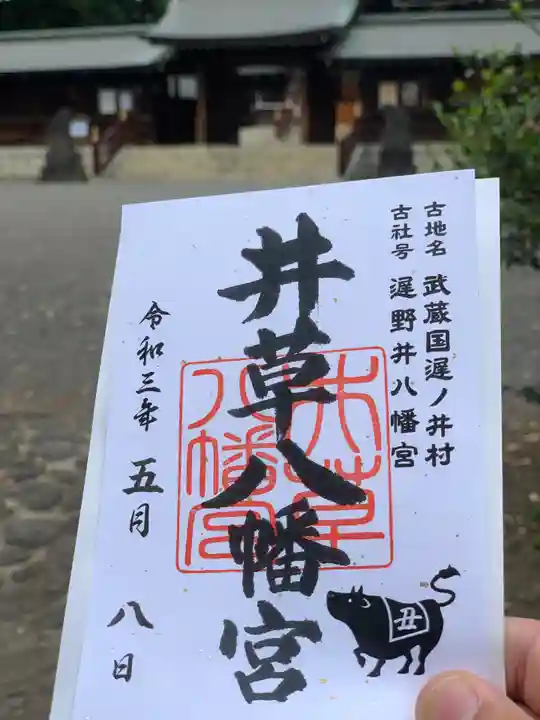 古地名 武蔵国遅ノ井村
古社号 遅野井八幡宮
井草八幡宮
井草八幡宮
令和三年 五月 八日
丑